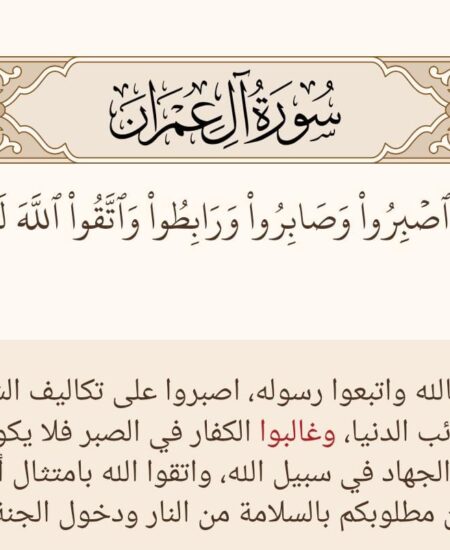 سُورَةُ آلِ عِمْرَانَ
ٱصْبِرُوا۟ وَصَابِرُوا۟ وَرَابِطُوا۟ وَٱتَّقُوا۟ ٱللَّهَ
بالله واتبعوا رسوله، اصبروا على تكاليف
الدنيا، وغالبوا الكفار في الصبر فلا
الجهاد في سبيل الله، واتقوا الله بامتثال
مطلوبكم بالسلامة من النار ودخول الجنة